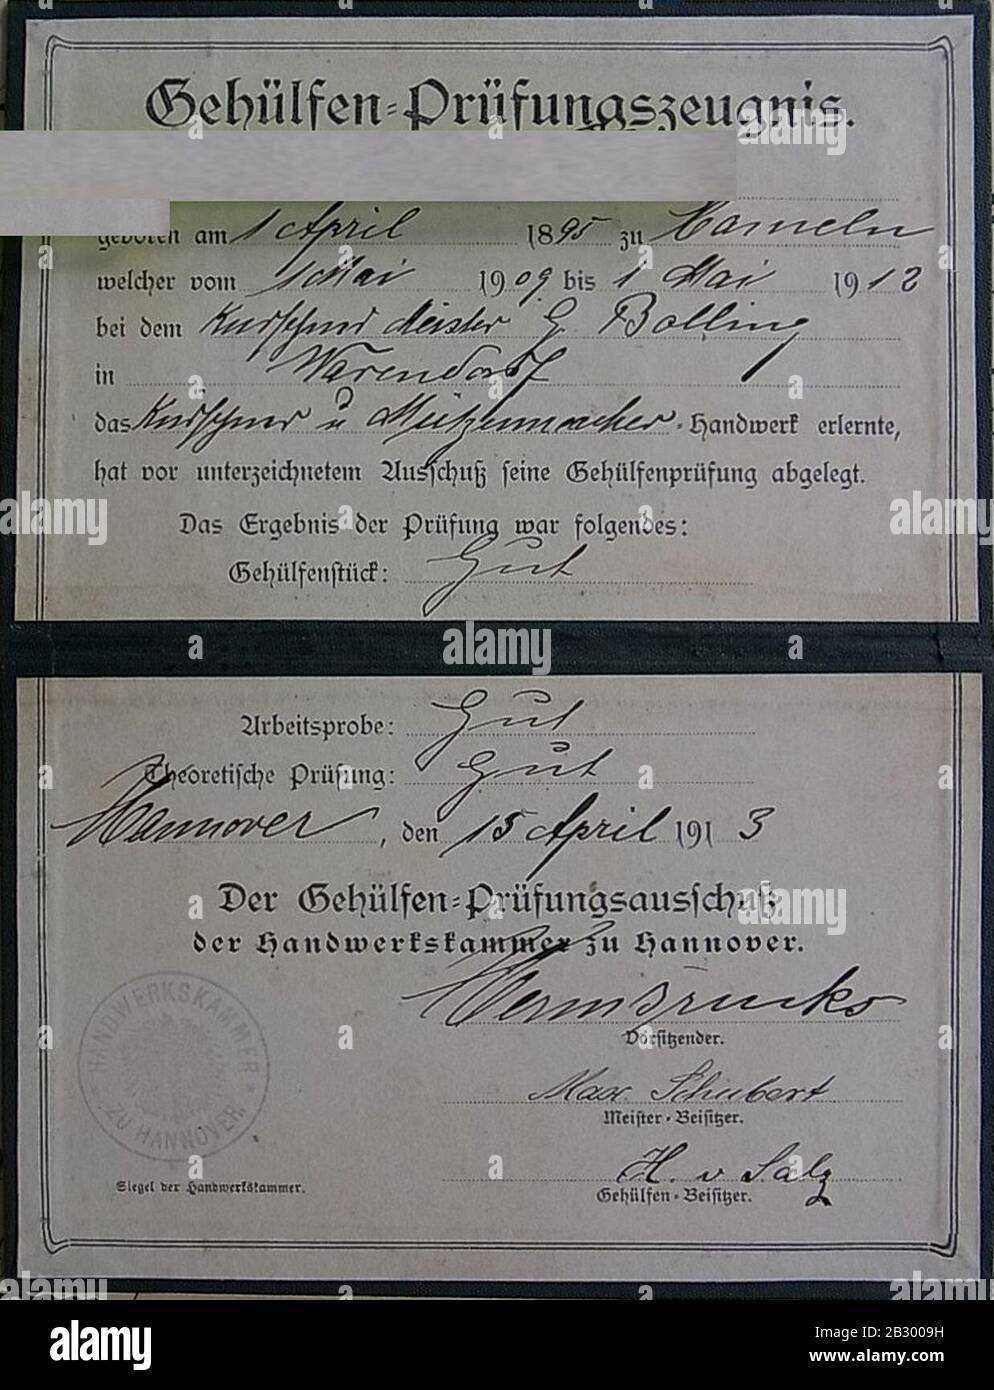 Gehülfen-Prüfungszeugnis.
geboren am 1 April 1895 zu Hameln
welcher vom 1 Mai 1909 bis 1 Mai 1912
bei dem Kürschner Meister G. Bolling
in Warendorf
das Kürschner u Mützenmacher-Handwerk erlernte,
hat vor unterzeichnetem Ausschuß seine Gehülfenprüfung abgelegt.
Das Ergebnis der Prüfung war folgendes:
Gehülfenstück: Gut
Arbeitsprobe: Gut
Theoretische Prüfung: Gut
Hannover, den 15 April 1913
Der Gehülfen-Prüfungsausschuß
der Handwerkskammer zu Hannover.
Vorsitzender.
Max Schubert
Meister-Beisitzer.
H. v Salz
Gehülfen-Beisitzer.
HANDWERKSKAMMER
ZU HANNOVER.
Siegel der Handwerkskammer.
alamy
alamy
Image ID: 2B3009H
www.alamy.com